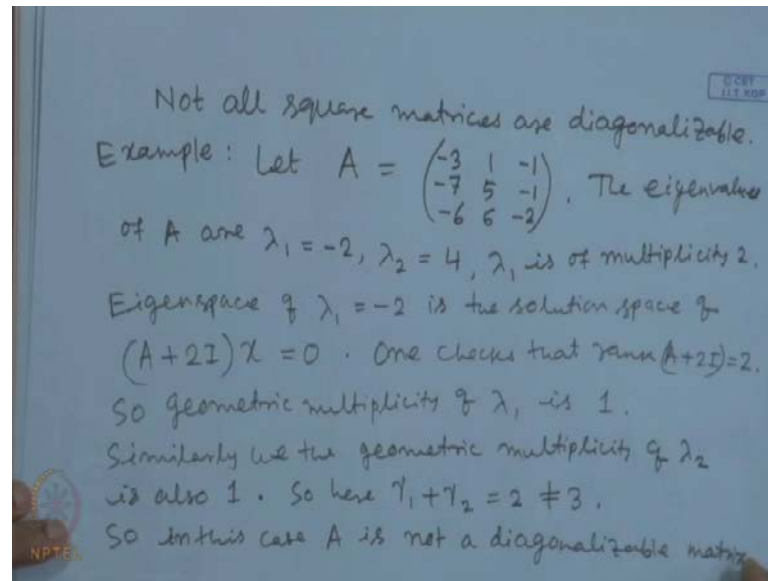 © CET
I.I.T. KGP
Not all square matrices are diagonalizable.
Example: Let A = (-3 1 -1; -7 5 -1; -6 6 -2). The eigenvalues
of A are λ₁ = -2, λ₂ = 4, λ₁ is of multiplicity 2.
Eigenspace of λ₁ = -2 is the solution space of
(A+2I)x = 0. One checks that rank(A+2I)=2.
So geometric multiplicity of λ₁ is 1.
Similarly we the geometric multiplicity of λ₂
is also 1. So here γ₁+γ₂ = 2 ≠ 3.
So in this case A is not a diagonalizable matrix
NPTEL